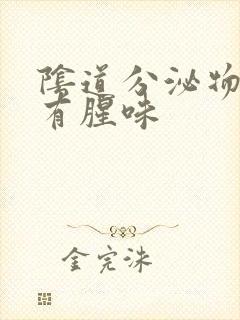 陰道分泌物
有腥味
金完洙